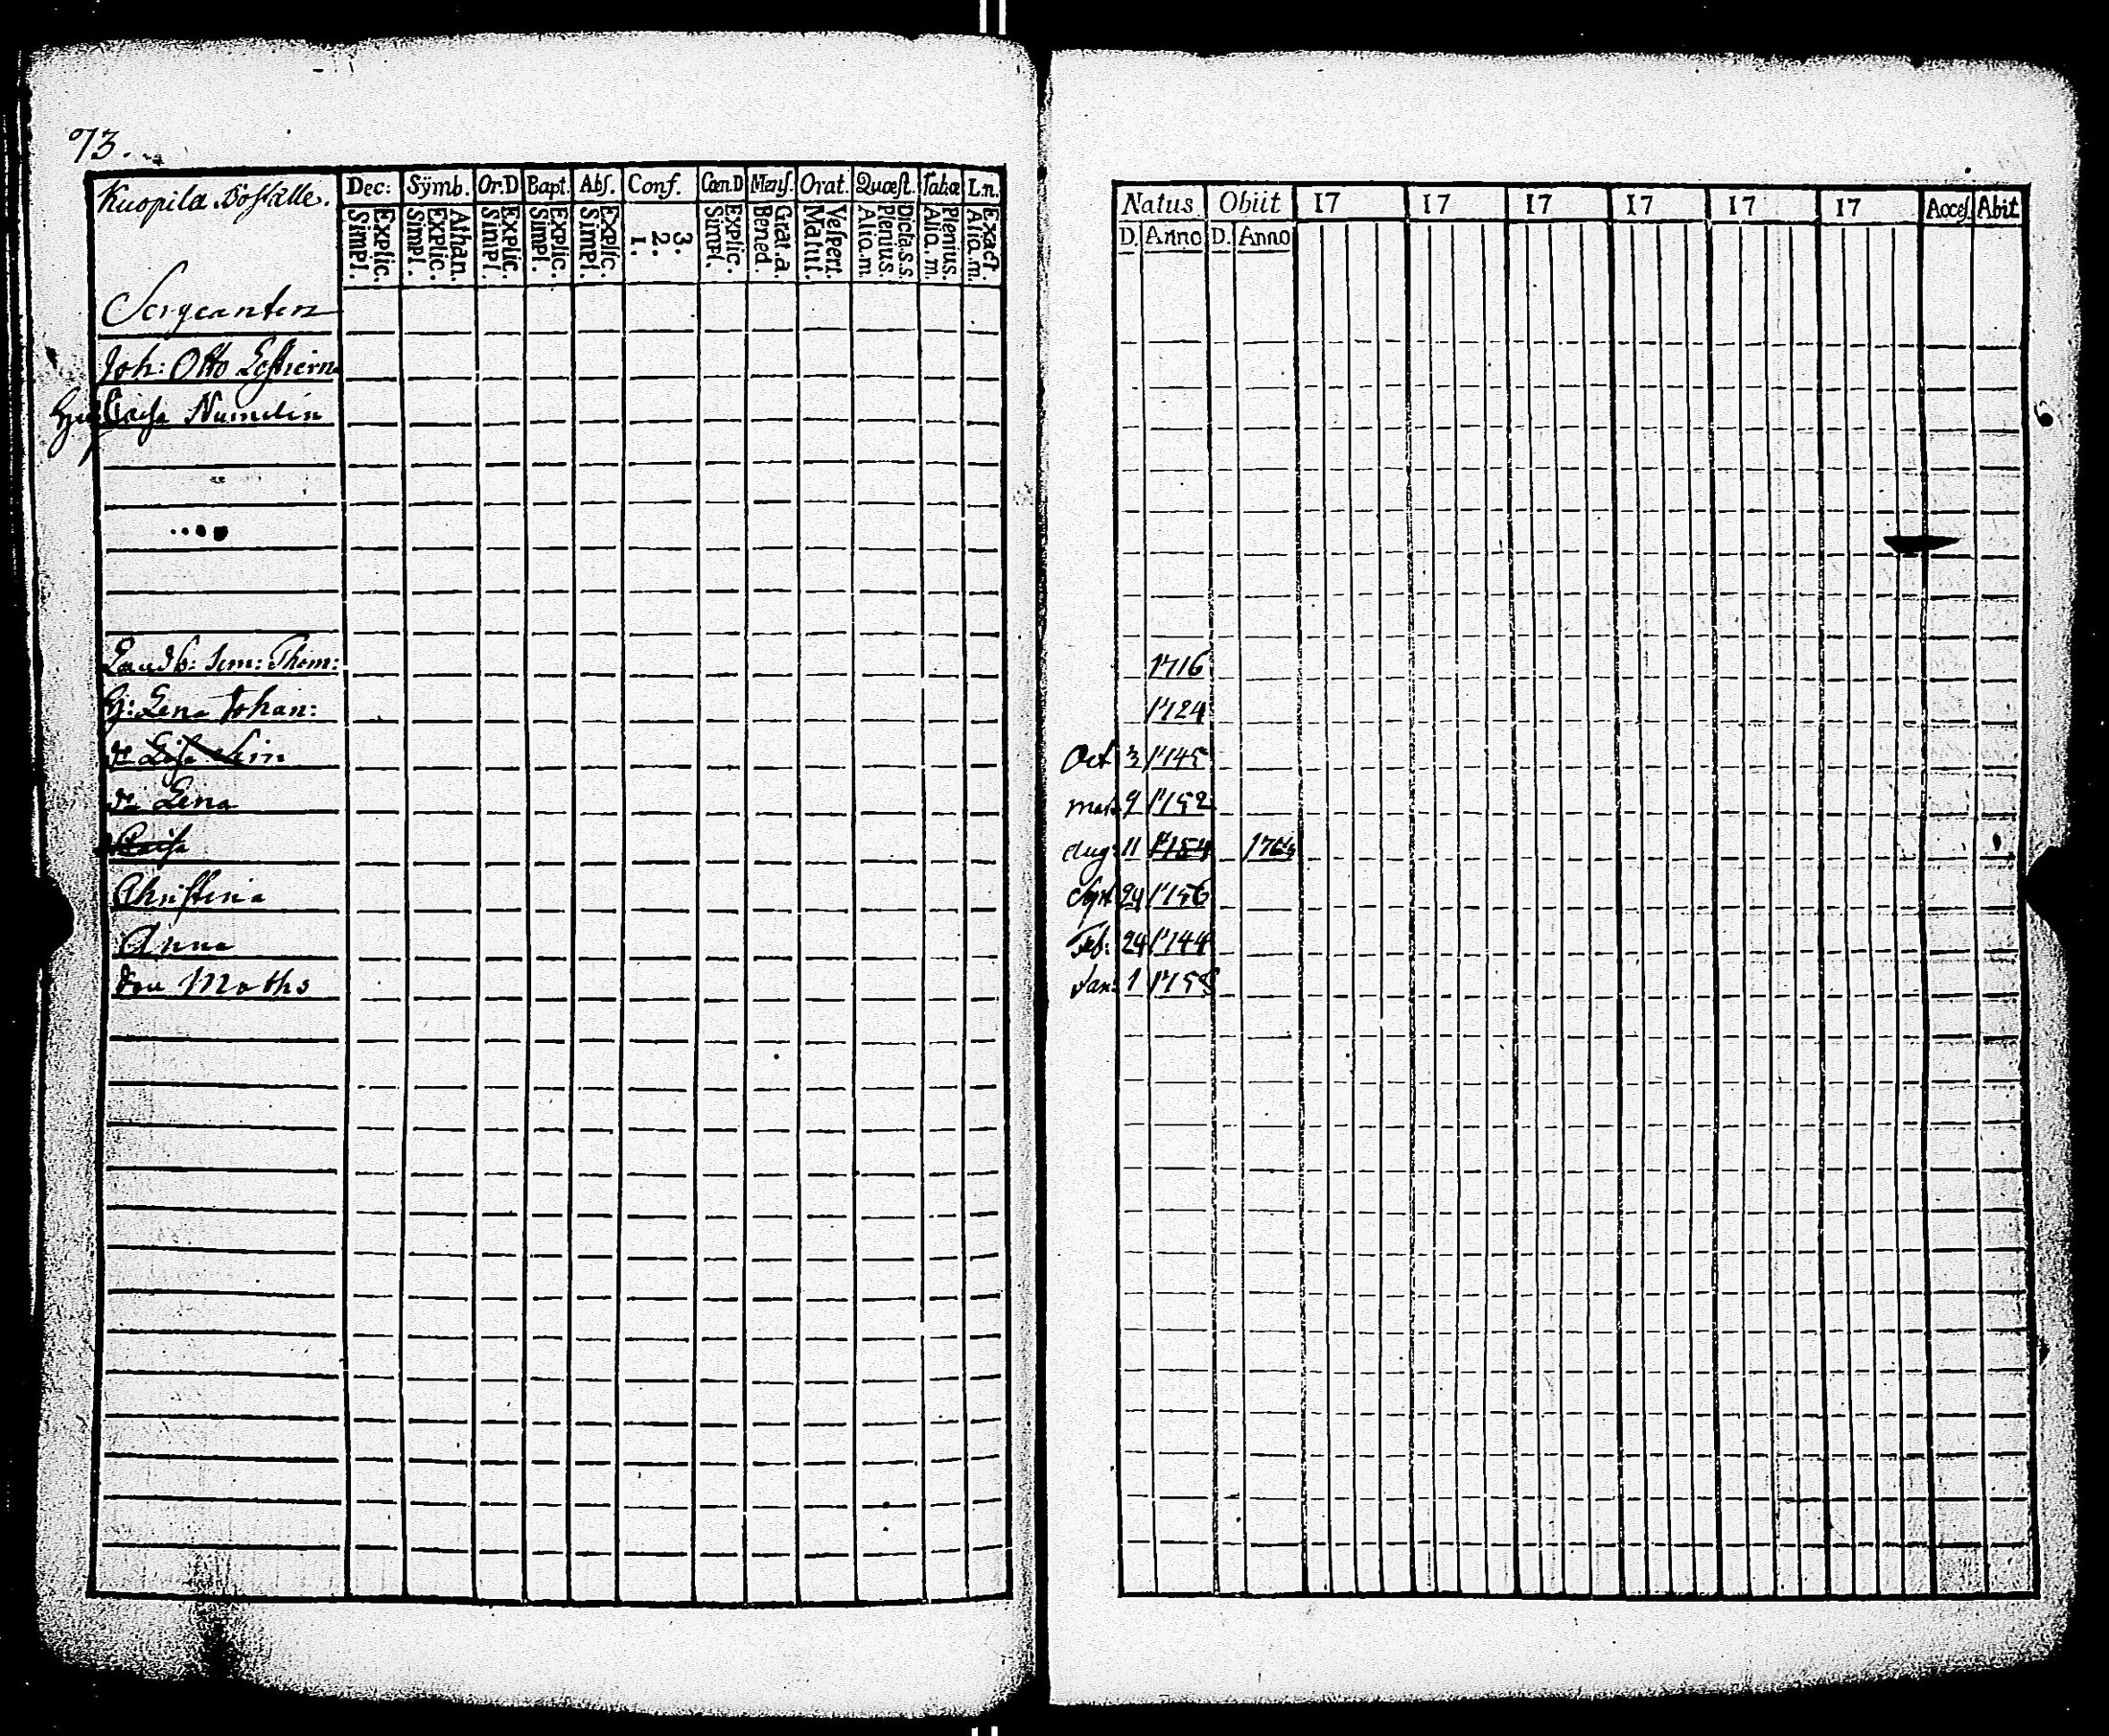 73.
Kuopila Boställe.
Dec: Sÿmb. Or.D Bapt. Abs. Conf. Cœn.D Mens. Orat. Quæst. Tabæ L.n.
Explic. Simpl. Athan. Explic. Simpl. Explic. Simpl. Explic. Simpl. Explic. Simpl. 3. 2. 1. Explic. Simpl. Grat.a. Bened. Vespert. Matut. Dicta.s.s. Plenius. Aliq.m. Plenius. Aliq.m. Exact. Aliq.m.
Sergeanten
Joh: Otto
Caisa Numelin
Landb: Sim: Thom:
H: Lena Johan:
dr Lisa Sim
dr Lena
Caisa
Christina
Anna
Son Maths
Natus Obiit 17 17 17 17 17 17 Acces. Abit
D. Anno D. Anno
1716
1724
Oct 3 1745
9 1752
Aug: 11 1754 1763
Sept 24 1756
Feb: 24 1744
Jan: 1 1758